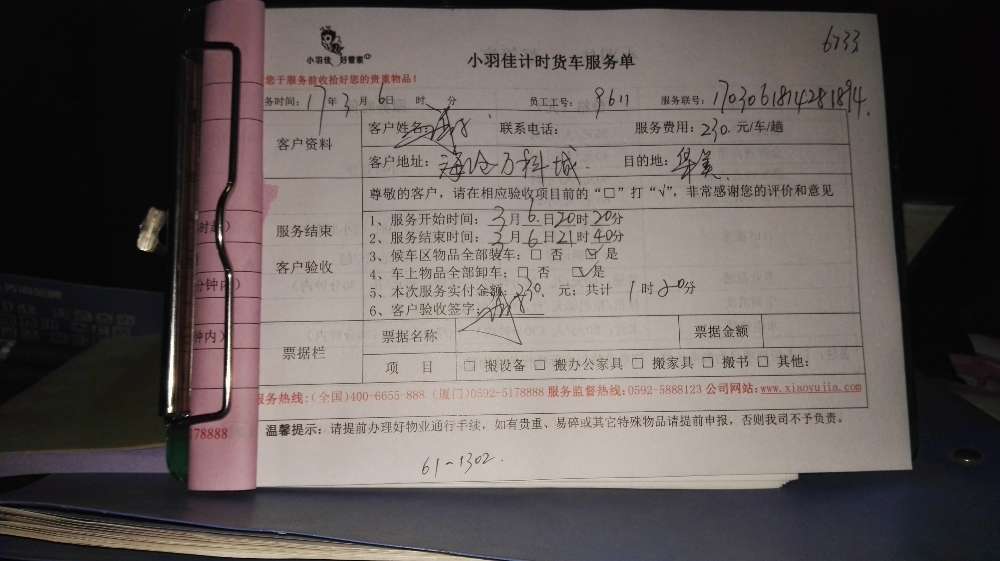 6733
小羽佳 好管家
小羽佳计时货车服务单
您于服务前收拾好您的贵重物品！
务时间：17年3月6日 时 分 员工工号：9611 服务联号：1703061814281894.
客户资料
客户姓名： 联系电话： 服务费用：230. 元/车/趟
客户地址：海沧万科城 目的地：集美
尊敬的客户，请在相应验收项目前的“□”打“√”，非常感谢您的评价和意见
服务结束
客户验收
1、服务开始时间：3月6日20时20分
2、服务结束时间：3月6日21时40分
3、候车区物品全部装车：□ 否 ☑ 是
4、车上物品全部卸车：□ 否 ☑ 是
5、本次服务实付金额：230. 元；共计 1时20分
6、客户验收签字：
票据栏
票据名称 票据金额
项 目 □ 搬设备 □ 搬办公家具 □ 搬家具 □ 搬书 □ 其他：
服务热线：(全国)400-6655-888 (厦门)0592-5178888 服务监督热线：0592-5888123 公司网站：www.xiaoyujia.com
温馨提示：请提前办理好物业通行手续，如有贵重、易碎或其它特殊物品请提前申报，否则我司不予负责。
61-1302.
分钟内）
钟内）
178888